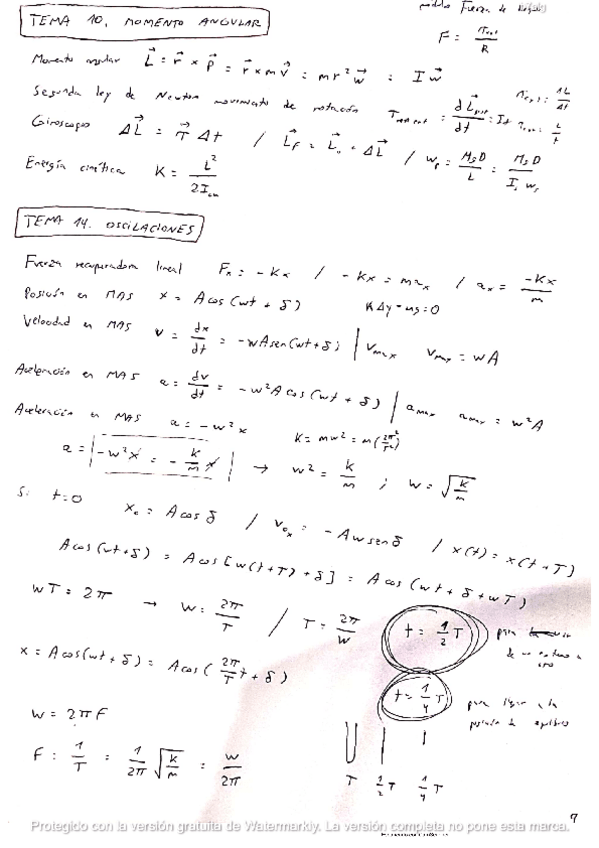 TEMA 10. MOMENTO ANGULAR
F = τ / R
Momento angular L⃗ = r⃗ × p⃗ = r⃗ × m v⃗ = m r² w⃗ = I w⃗
Segunda ley de Newton movimiento de rotación
Giroscopo ΔL⃗ = τ⃗ Δt / L⃗f = L⃗o + ΔL⃗ / wp = MgD / L = MgD / Is ws
Energía cinética K = L² / 2Icm
TEMA 14. OSCILACIONES
Fuerza recuperadora lineal Fx = -Kx / -Kx = m ax / ax = -Kx / m
Posición en MAS x = A cos(wt + δ) KΔy - mg = 0
Velocidad en MAS v = dx/dt = -wA sen(wt + δ) | vmax vmax = wA
Aceleración en MAS a = dv/dt = -w²A cos(wt + δ) | amax amax = w²A
Aceleración en MAS a = -w²x
a = |-w²x = -K/m x| → w² = K/m ; w = √(K/m)
Si t = 0 xo = A cos δ / vox = -Aw sen δ / x(t) = x(t + T)
A cos(wt + δ) = A cos[w(t + T) + δ] = A cos(wt + δ + wT)
wT = 2π → w = 2π/T / T = 2π/w
t = 1/2 T para
de un extremo a
x = A cos(wt + δ) = A cos(2π/T t + δ)
t = 1/4 T para llegar a la
posición de equilibrio
w = 2πF
F = 1/T = 1/2π √(K/m) = w/2π
T 1/2 T 1/4 T
9
Protegido con la versión gratuita de Watermarkly. La versión completa no pone esta marca.